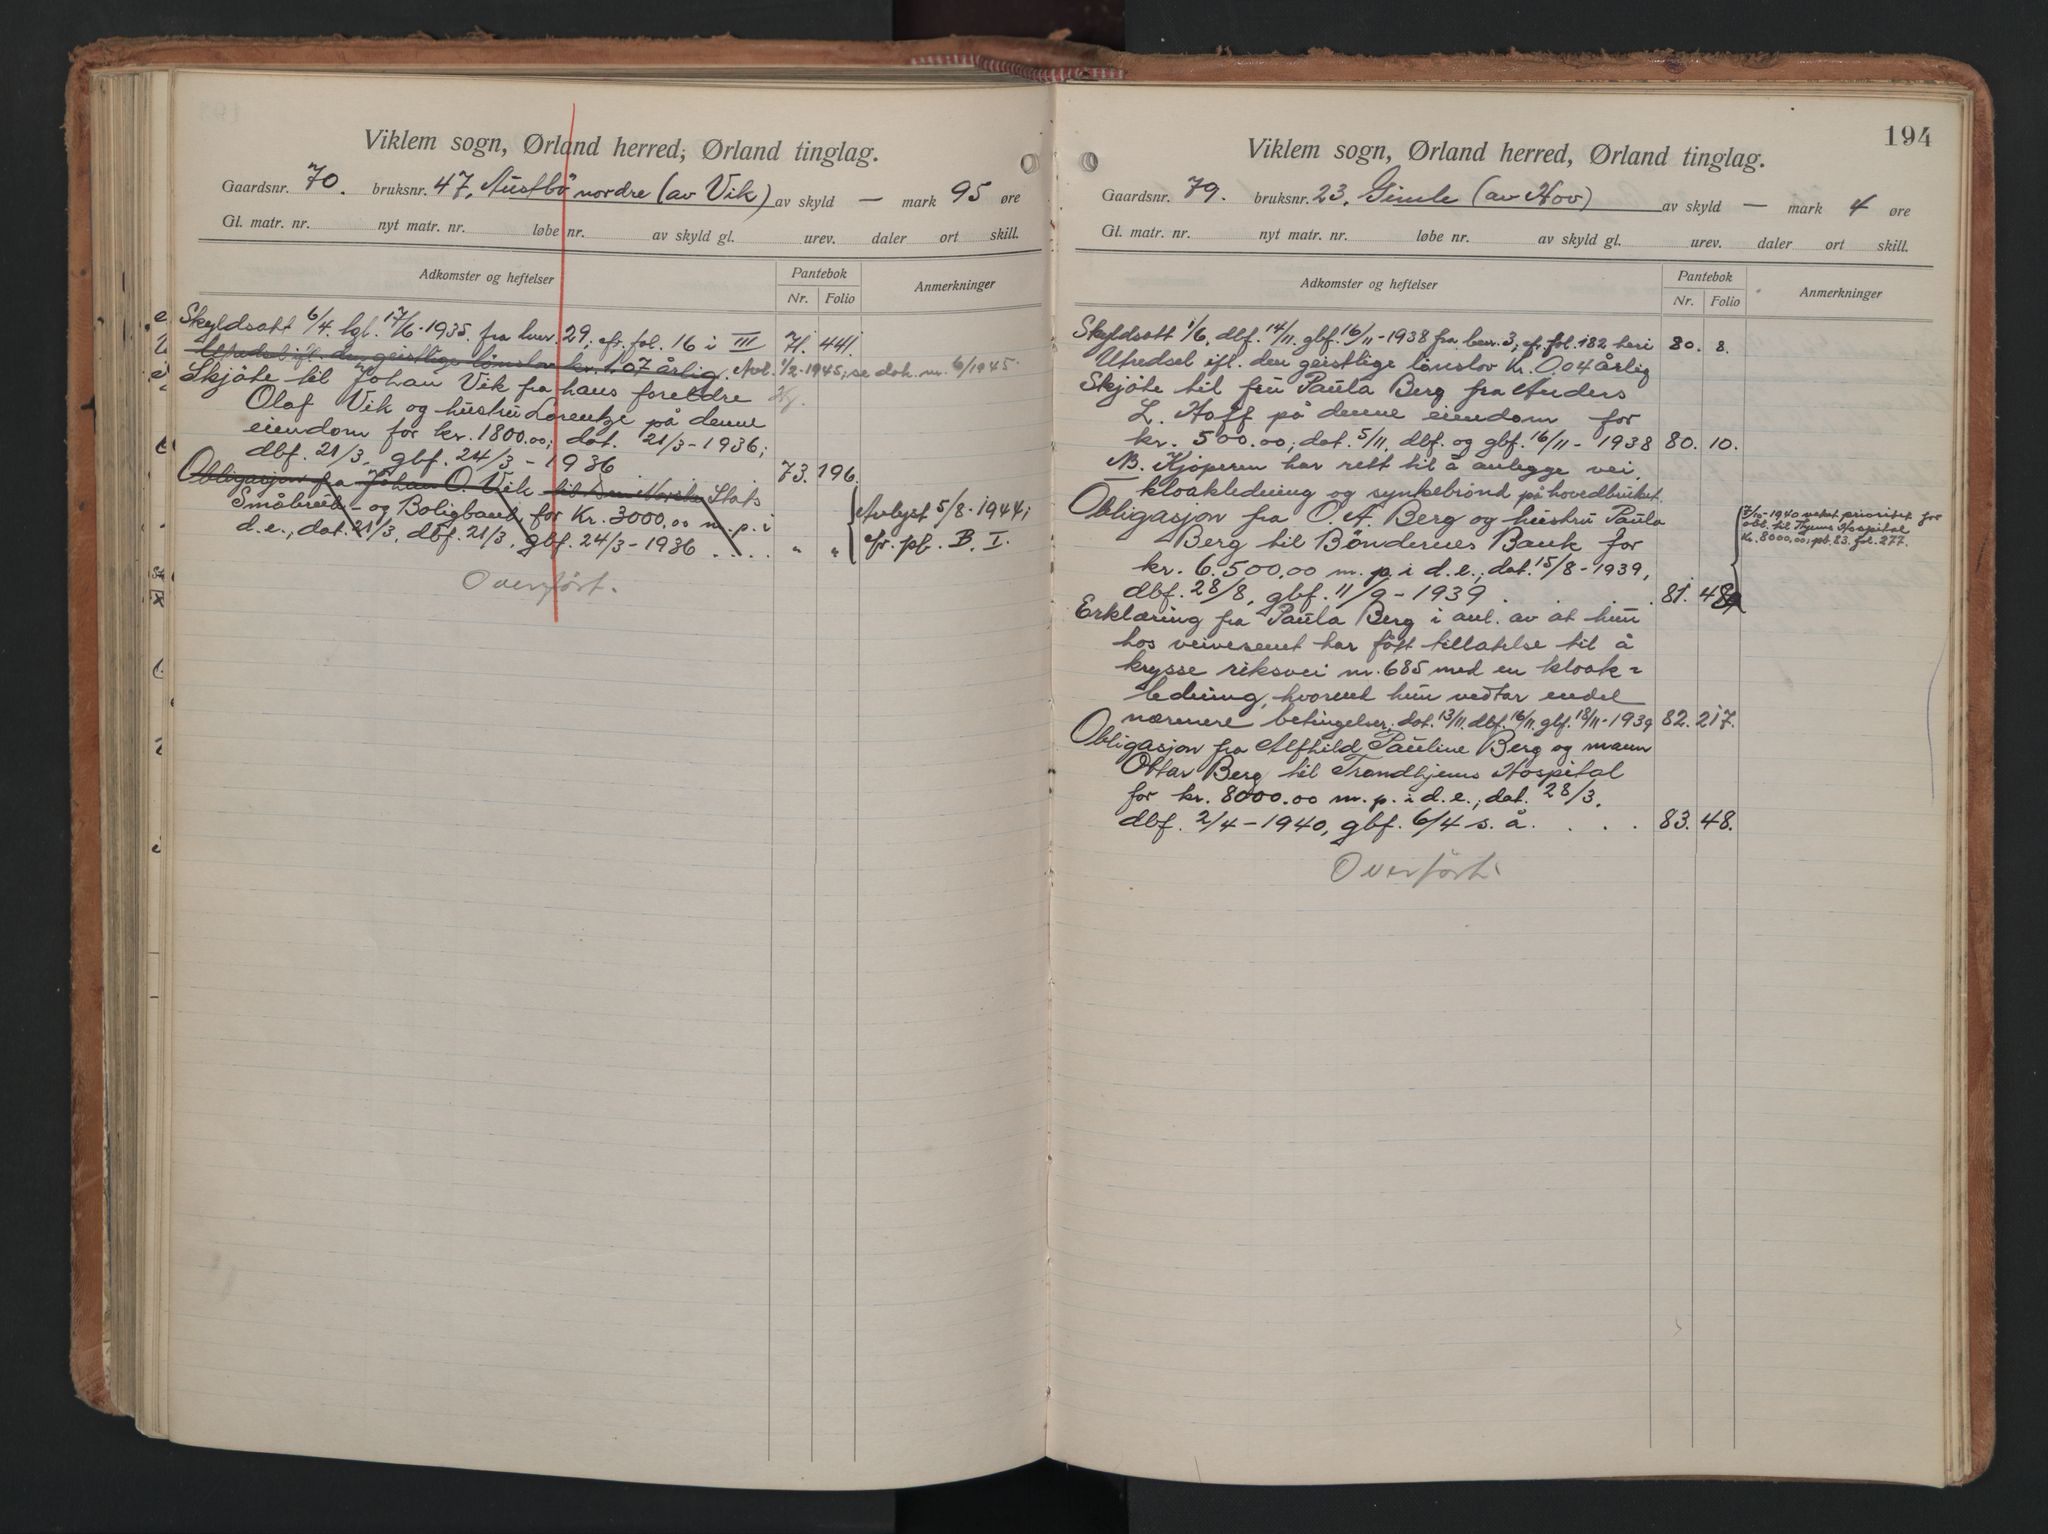 Viklem sogn, Ørland herred, Ørland tinglag.
Gaardsnr. 70. bruksnr. 47, Austbö nordre (av Vik) av skyld — mark 95 øre
Gl. matr. nr. nyt matr. nr. løbe nr. av skyld gl. urev. daler ort skill.
Adkomster og heftelser Pantebok Anmerkninger
Nr. Folio
Skyldsatt 6/4. tgl. 17/6-1935. fra bnr. 29; cfr. fol. 16 i III 71. 441.
Utredsel ifl. den geistlige lönslov kr. 1.07 årlig. Avl. 1/2-1945; se dok. nr. 6/1945.
Skjöte til Johan Vik fra hans foreldre
Olaf Vik og hustru Lorentze på denne
eiendom for kr. 1800.00; dat. 21/3-1936;
dbf. 21/3, gbf. 24/3-1936 73. 196.
Obligasjon fra Johan O. Vik til Den Norske Stats
Småbruk- og Boligbank for Kr. 3000.00 m. p. i
d. e., dat. 21/3, dbf. 21/3, gbf. 24/3-1936 . . . . " "
Avlyst 5/8-1944;
cfr. pb. B. I.
Overfört.
194
Viklem sogn, Ørland herred, Ørland tinglag.
Gaardsnr. 79. bruksnr. 23, Gimle (av Hov) av skyld — mark 4 øre
Gl. matr. nr. nyt matr. nr. løbe nr. av skyld gl. urev. daler ort skill.
Adkomster og heftelser Pantebok Anmerkninger
Nr. Folio
Skyldsatt 1/6, dbf. 14/11. gbf. 16/11-1938 fra bnr. 3; cfr. fol. 182 heri 80. 8.
Utredsel ifl. den geistlige lönslov Kr. 0.04 årlig
Skjöte til fru Paula Berg fra Anders
L. Hoff på denne eiendom for
kr. 500.00; dat. 5/11, dbf. og gbf. 16/11-1938 80. 10.
NB. Kjöperen har rett til å anlegge vei,
kloakledning og synkebrönd på hovedbruket.
Obligasjon fra O. A. Berg og hustru Paula
Berg til Böndernes Bank for
kr. 6.500.00 m. p. i d. e.; dat. 15/8-1939,
dbf. 28/8, gbf. 11/9-1939 . . . 81. 489
7/10-1940 veket prioritet for
obl. til Tr.hjems Hospital
Kr. 8000,00; pb. 83. fol. 277.
Erklæring fra Paula Berg i anl. av at hun
hos veivesenet har fått tillatelse til å
krysse riksvei nr. 685 med en kloak=
ledning, hvorent hun vedtar endel
nærmere betingelser. dat. 13/11. dbf. 16/11. gbf. 18/11-1939 82. 217.
Obligasjon fra Alfhild Pauline Berg og mann
Ottar Berg til Trondhjems Hospital
for kr. 8000.00 m. p. i d. e.; dat. 28/3.
dbf. 2/4-1940, gbf. 6/4 s. å. . . . 83. 48.
Overfört.